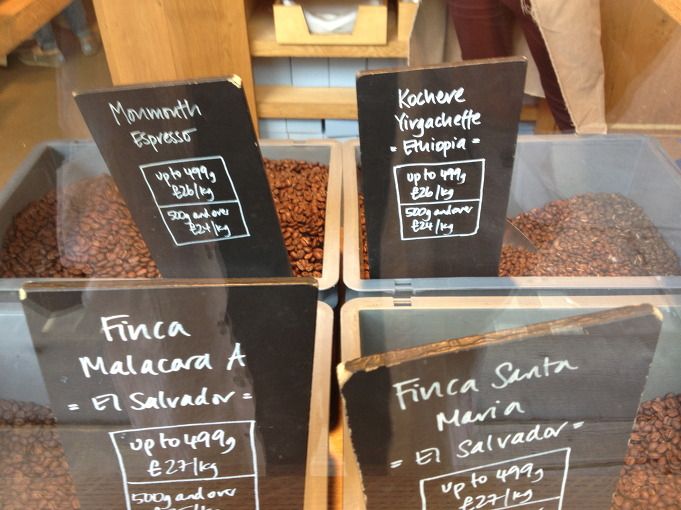 Monmouth
Espresso
up to 499g
£26/kg
500g and over
£24/kg
Kochere
Yirgacheffe
= Ethiopia =
up to 499g
£26/kg
500g and over
£24/kg
Finca
Malacara A
= El Salvador =
up to 499g
£27/kg
500g and over
Finca Santa
Maria
= El Salvador =
up to 499g
£27/kg